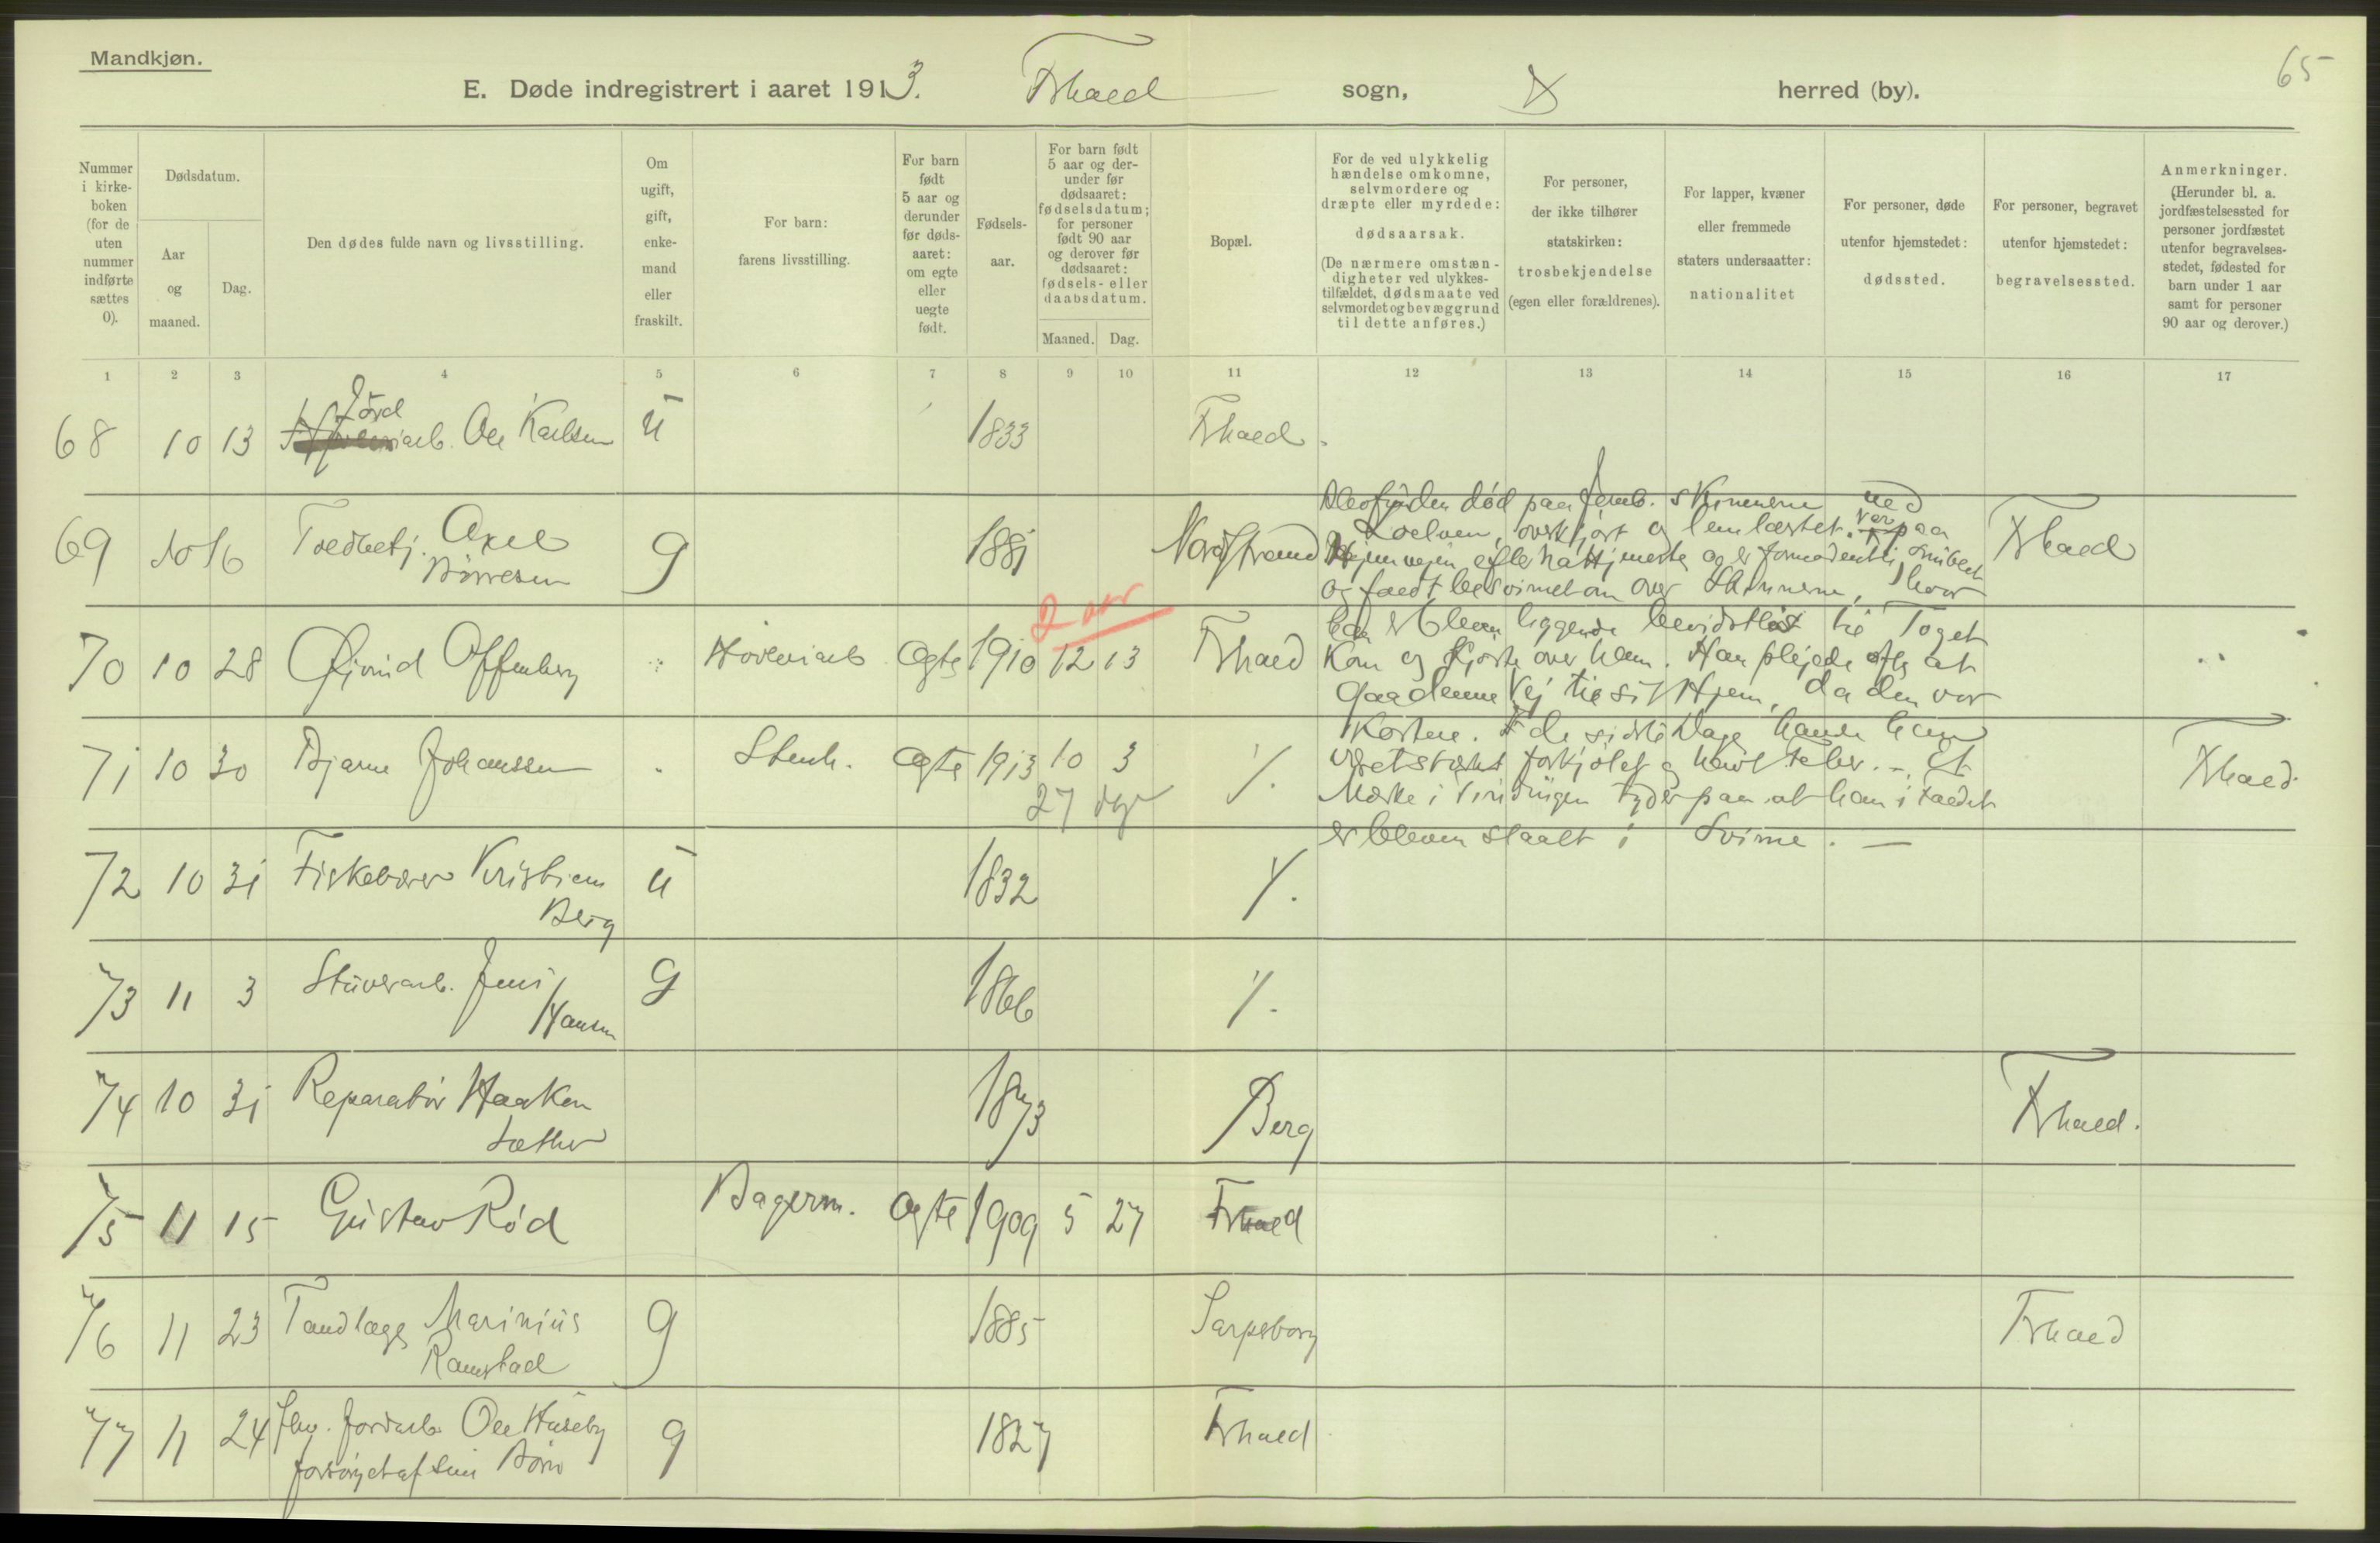 Mandkjøn.
65
E. Døde indregistrert i aaret 1913. Fr.hald sogn, herred (by).
Nummer i kirkeboken (for de uten nummer indførte sættes 0).
Dødsdatum.
Aar og maaned.
Dag.
Den dødes fulde navn og livsstilling.
Om ugift, gift, enkemand eller fraskilt.
For barn: farens livsstilling.
For barn født 5 aar og derunder før dødsaaret: om egte eller uegte født.
Fødselsaar.
For barn født 5 aar og derunder før dødsaaret: fødselsdatum; for personer født 90 aar og derover før dødsaaret: fødsels- eller daabsdatum.
Maaned.
Dag.
Bopæl.
For de ved ulykkelig hændelse omkomne, selvmordere og dræpte eller myrdede: dødsaarsak. (De nærmere omstændigheter ved ulykkestilfældet, dødsmaate ved selvmordet og bevæggrund til dette anføres.)
For personer, der ikke tilhører statskirken: trosbekjendelse (egen eller forældrenes).
For lapper, kvæner eller fremmede staters undersaatter: nationalitet
For personer, døde utenfor hjemstedet: dødssted.
For personer, begravet utenfor hjemstedet: begravelsessted.
Anmerkninger. (Herunder bl. a. jordfæstelsessted for personer jordfæstet utenfor begravelsesstedet, fødested for barn under 1 aar samt for personer 90 aar og derover.)
1 2 3 4 5 6 7 8 9 10 11 12 13 14 15 16 17
68 10 13 Jord arb. Ole Karlsen u 1833 Fr.hald.
69 10 16 Toldbetj. Axel Börresen g 1881 Nordstrand Fr.hald
Blev funden död paa Jernb. skinnerne ved
Loelven, overkjört og lemlæstet. var paa
Hjemvejen efter nattjeneste og er formodentlig snublet
og faldt besvimet om over Skinnerne, hvor
han er bleven liggende bevidstlös til Toget
kom og kjørte over ham. Han plejede ofte at
gaa denne Vej til sit Hjem, da den var
kortere. I de sidste Dage havde han
været stærkt forkjölet og havt Feber. – Et
Mærke i Tindingen tyder paa at han i Faldet
er bleven slaaet i Svime. —
70 10 28 Øivind Offenberg Höveriarb ægte 1910 12 13 Fr.hald
2 aar
71 10 30 Bjarne Johanssen Stenh. ægte 1913 10 3 Fr.hald.
27 dge
72 10 31 Fiskebærer Kristian Berg u 1832
73 11 3 Stuverarb. Jens Hansen g 1866
74 10 31 Reparatör Haakon Sæther 1873 Berg Fr.hald.
75 11 15 Gustav Röd Bagerm. ægte 1909 5 27 Fr.hald
76 11 23 Tandlæge Marinius Ramstad g 1885 Sarpsborg Fr.hald
77 11 24 fhv. Jordarb. Ole Huseby g 1827 Fr.hald
forsörget af sine Börn